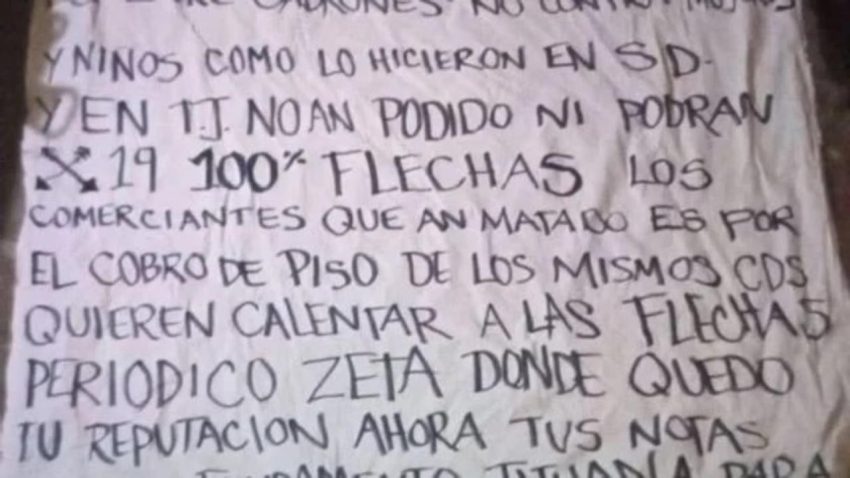 NO CONTRA
Y NIÑOS COMO LO HICIERON EN S D.
Y EN T.J. NO AN PODIDO NI PODRAN
19 100% FLECHAS LOS
COMERCIANTES QUE AN MATADO ES POR
EL COBRO DE PISO DE LOS MISMOS CDS
QUIEREN CALENTAR A LAS FLECHAS
PERIODICO ZETA DONDE QUEDO
TU REPUTACION AHORA TUS NOTAS
PARA